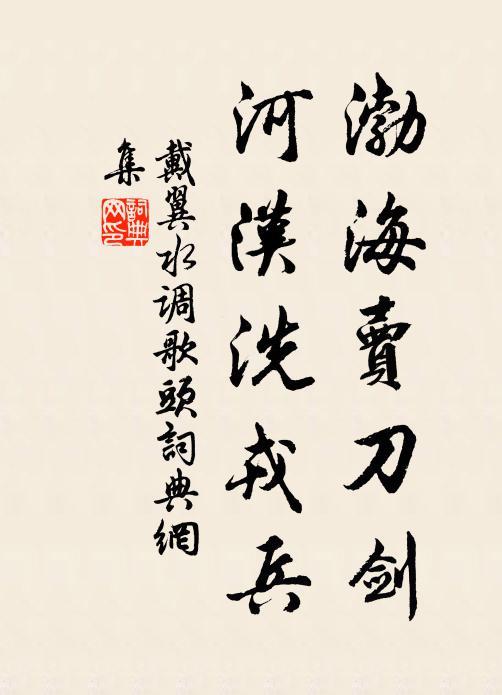 渤海賣刀劍
河漢洗戎兵
戴翼水调歌頭詞典網
集
詞典
网印